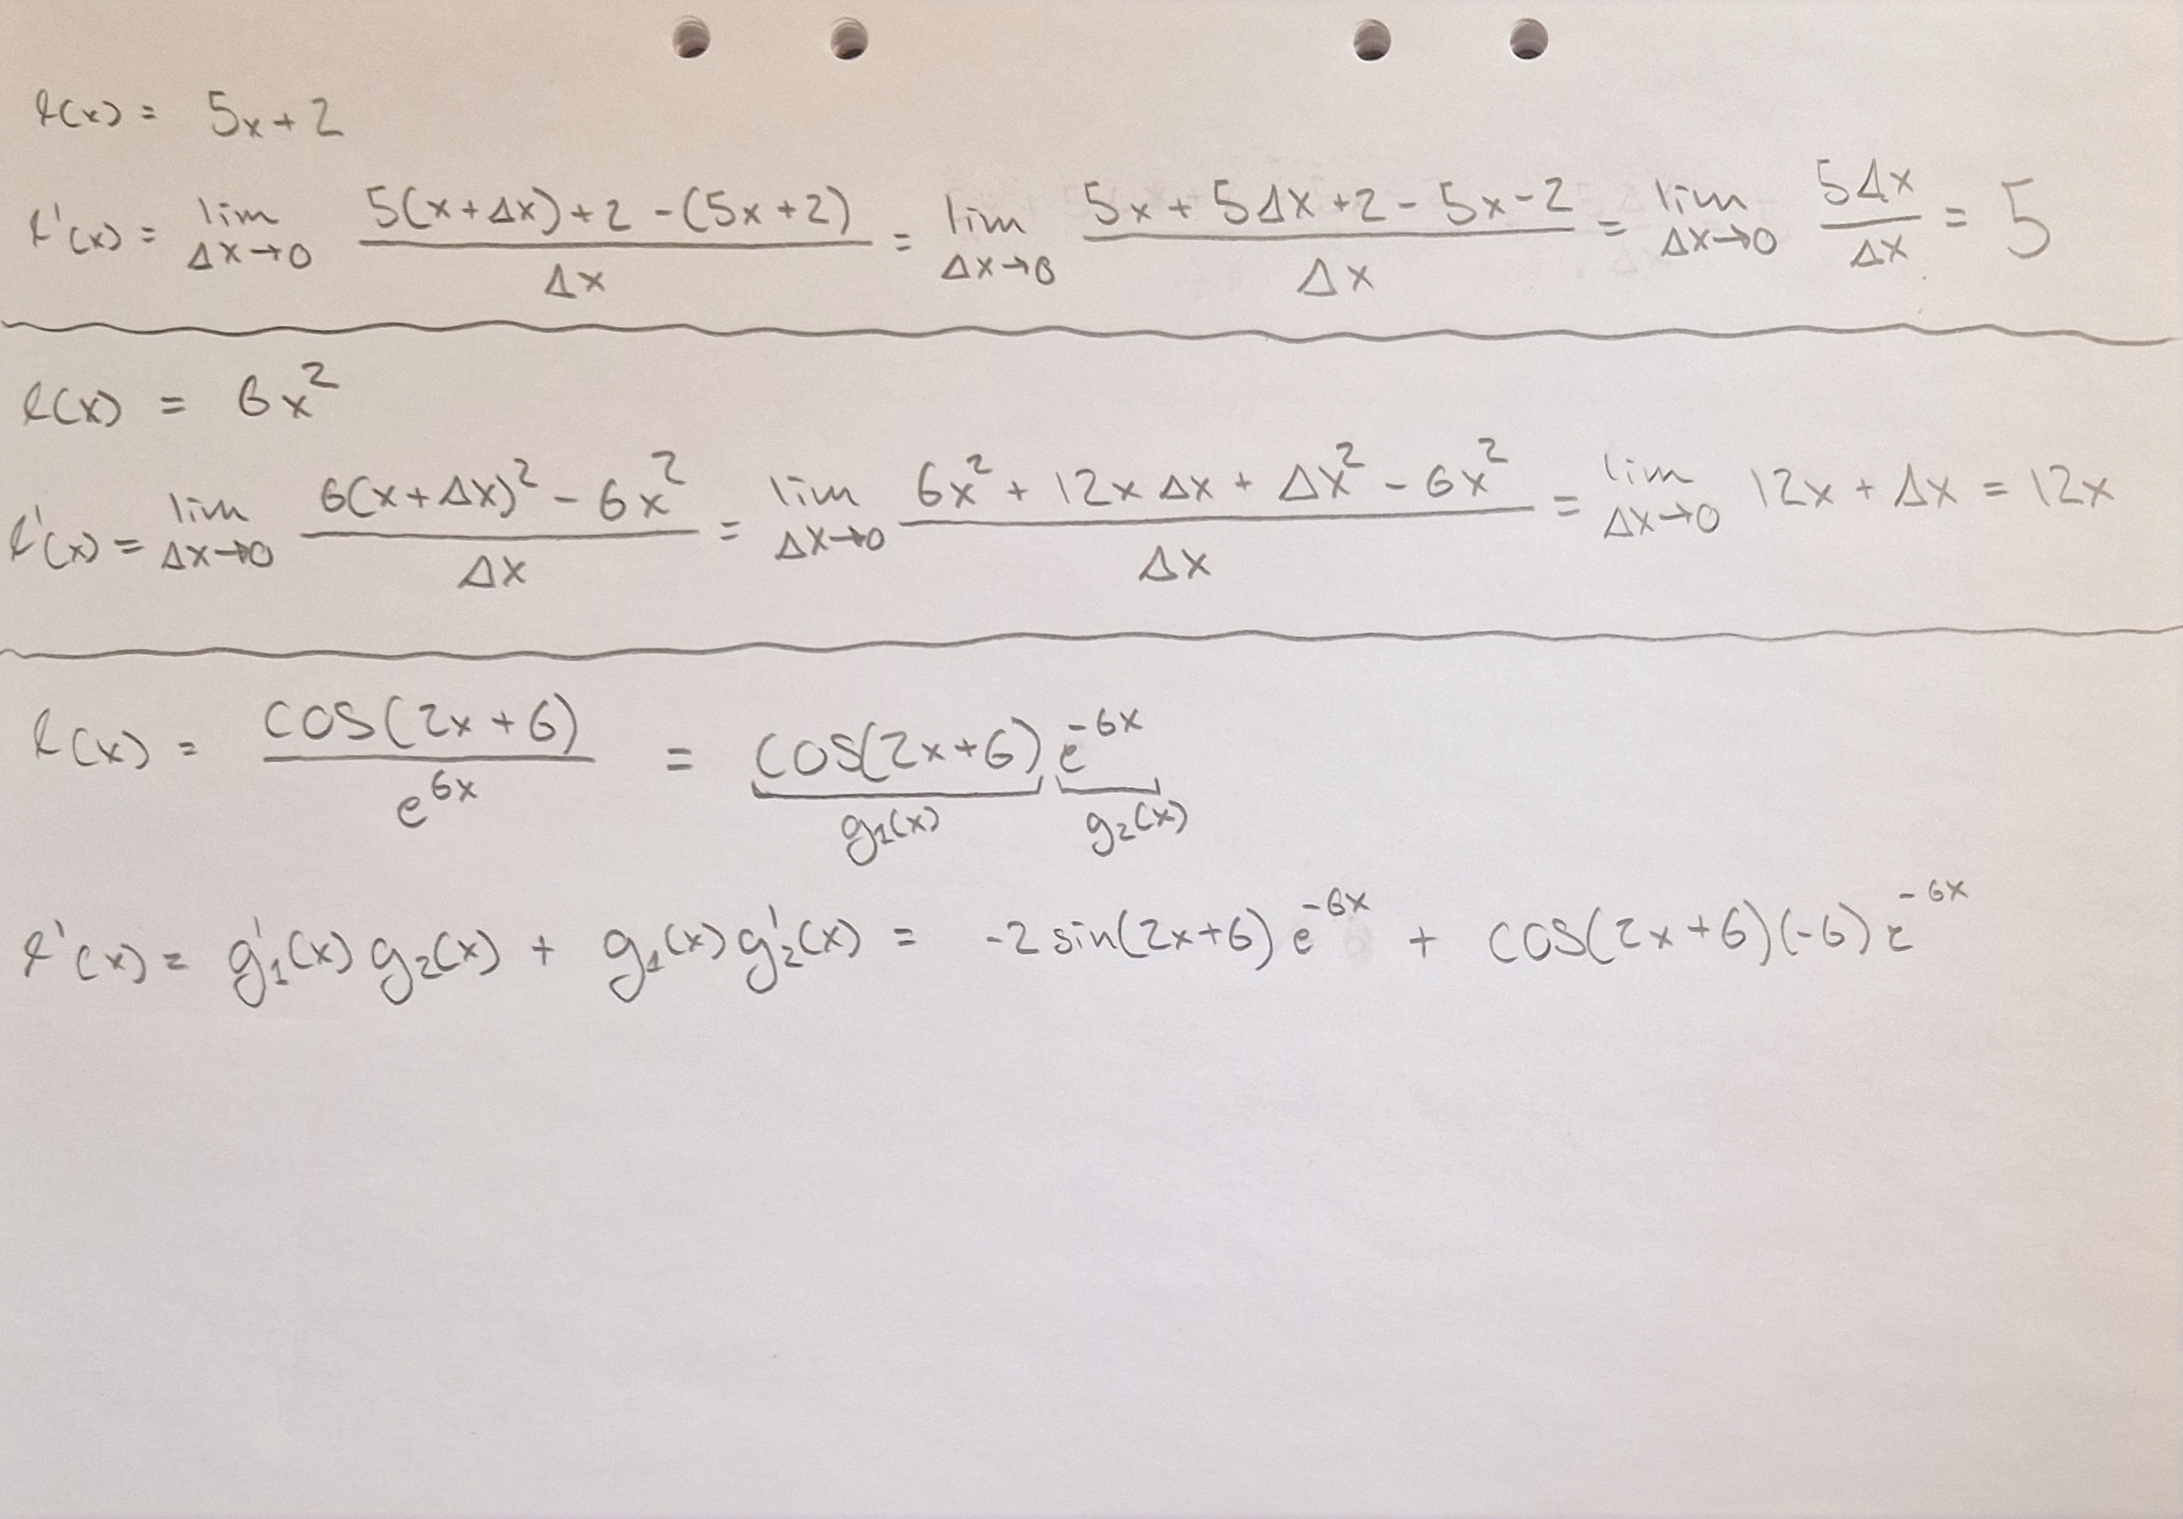 f(x) = 5x + 2
f'(x) = lim Δx→0 (5(x+Δx)+2-(5x+2))/Δx = lim Δx→0 (5x + 5Δx + 2 - 5x - 2)/Δx = lim Δx→0 5Δx/Δx = 5
f(x) = 6x²
f'(x) = lim Δx→0 (6(x+Δx)² - 6x²)/Δx = lim Δx→0 (6x² + 12xΔx + Δx² - 6x²)/Δx = lim Δx→0 12x + Δx = 12x
f(x) = cos(2x+6)/e^(6x) = cos(2x+6) e^(-6x)
g₁(x) g₂(x)
f'(x) = g₁'(x) g₂(x) + g₁(x) g₂'(x) = -2 sin(2x+6) e^(-6x) + cos(2x+6)(-6) e^(-6x)